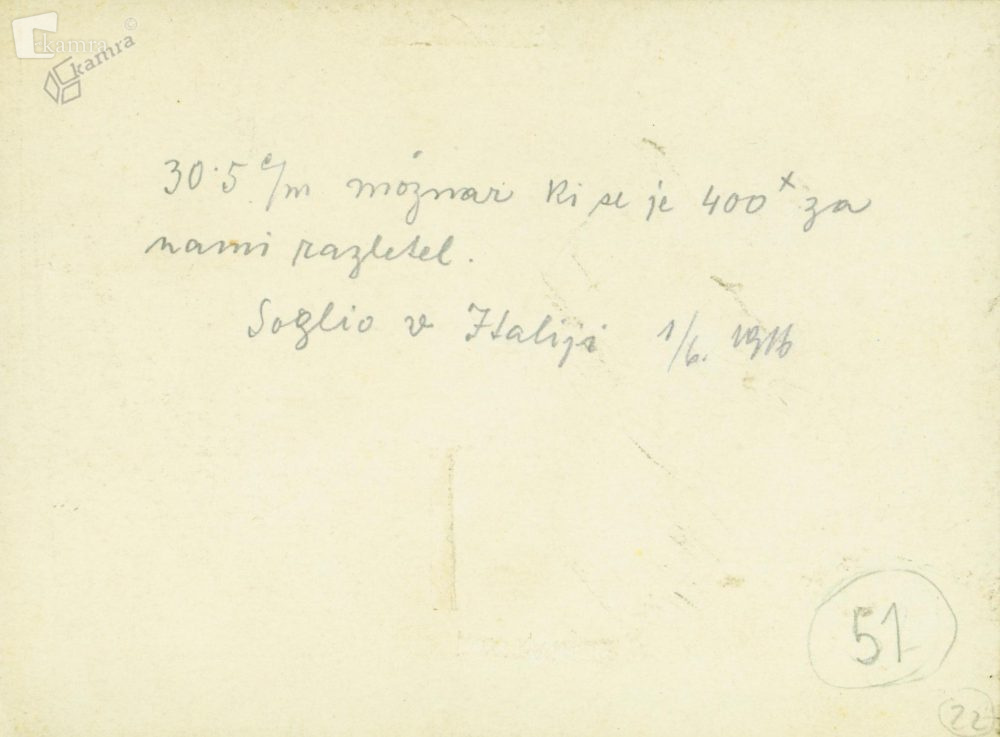 kamra ©
kamra
30·5 c/m možnar ki se je 400x za
nami razletel.
Soglio v Italiji 1/6. 1916
51
22